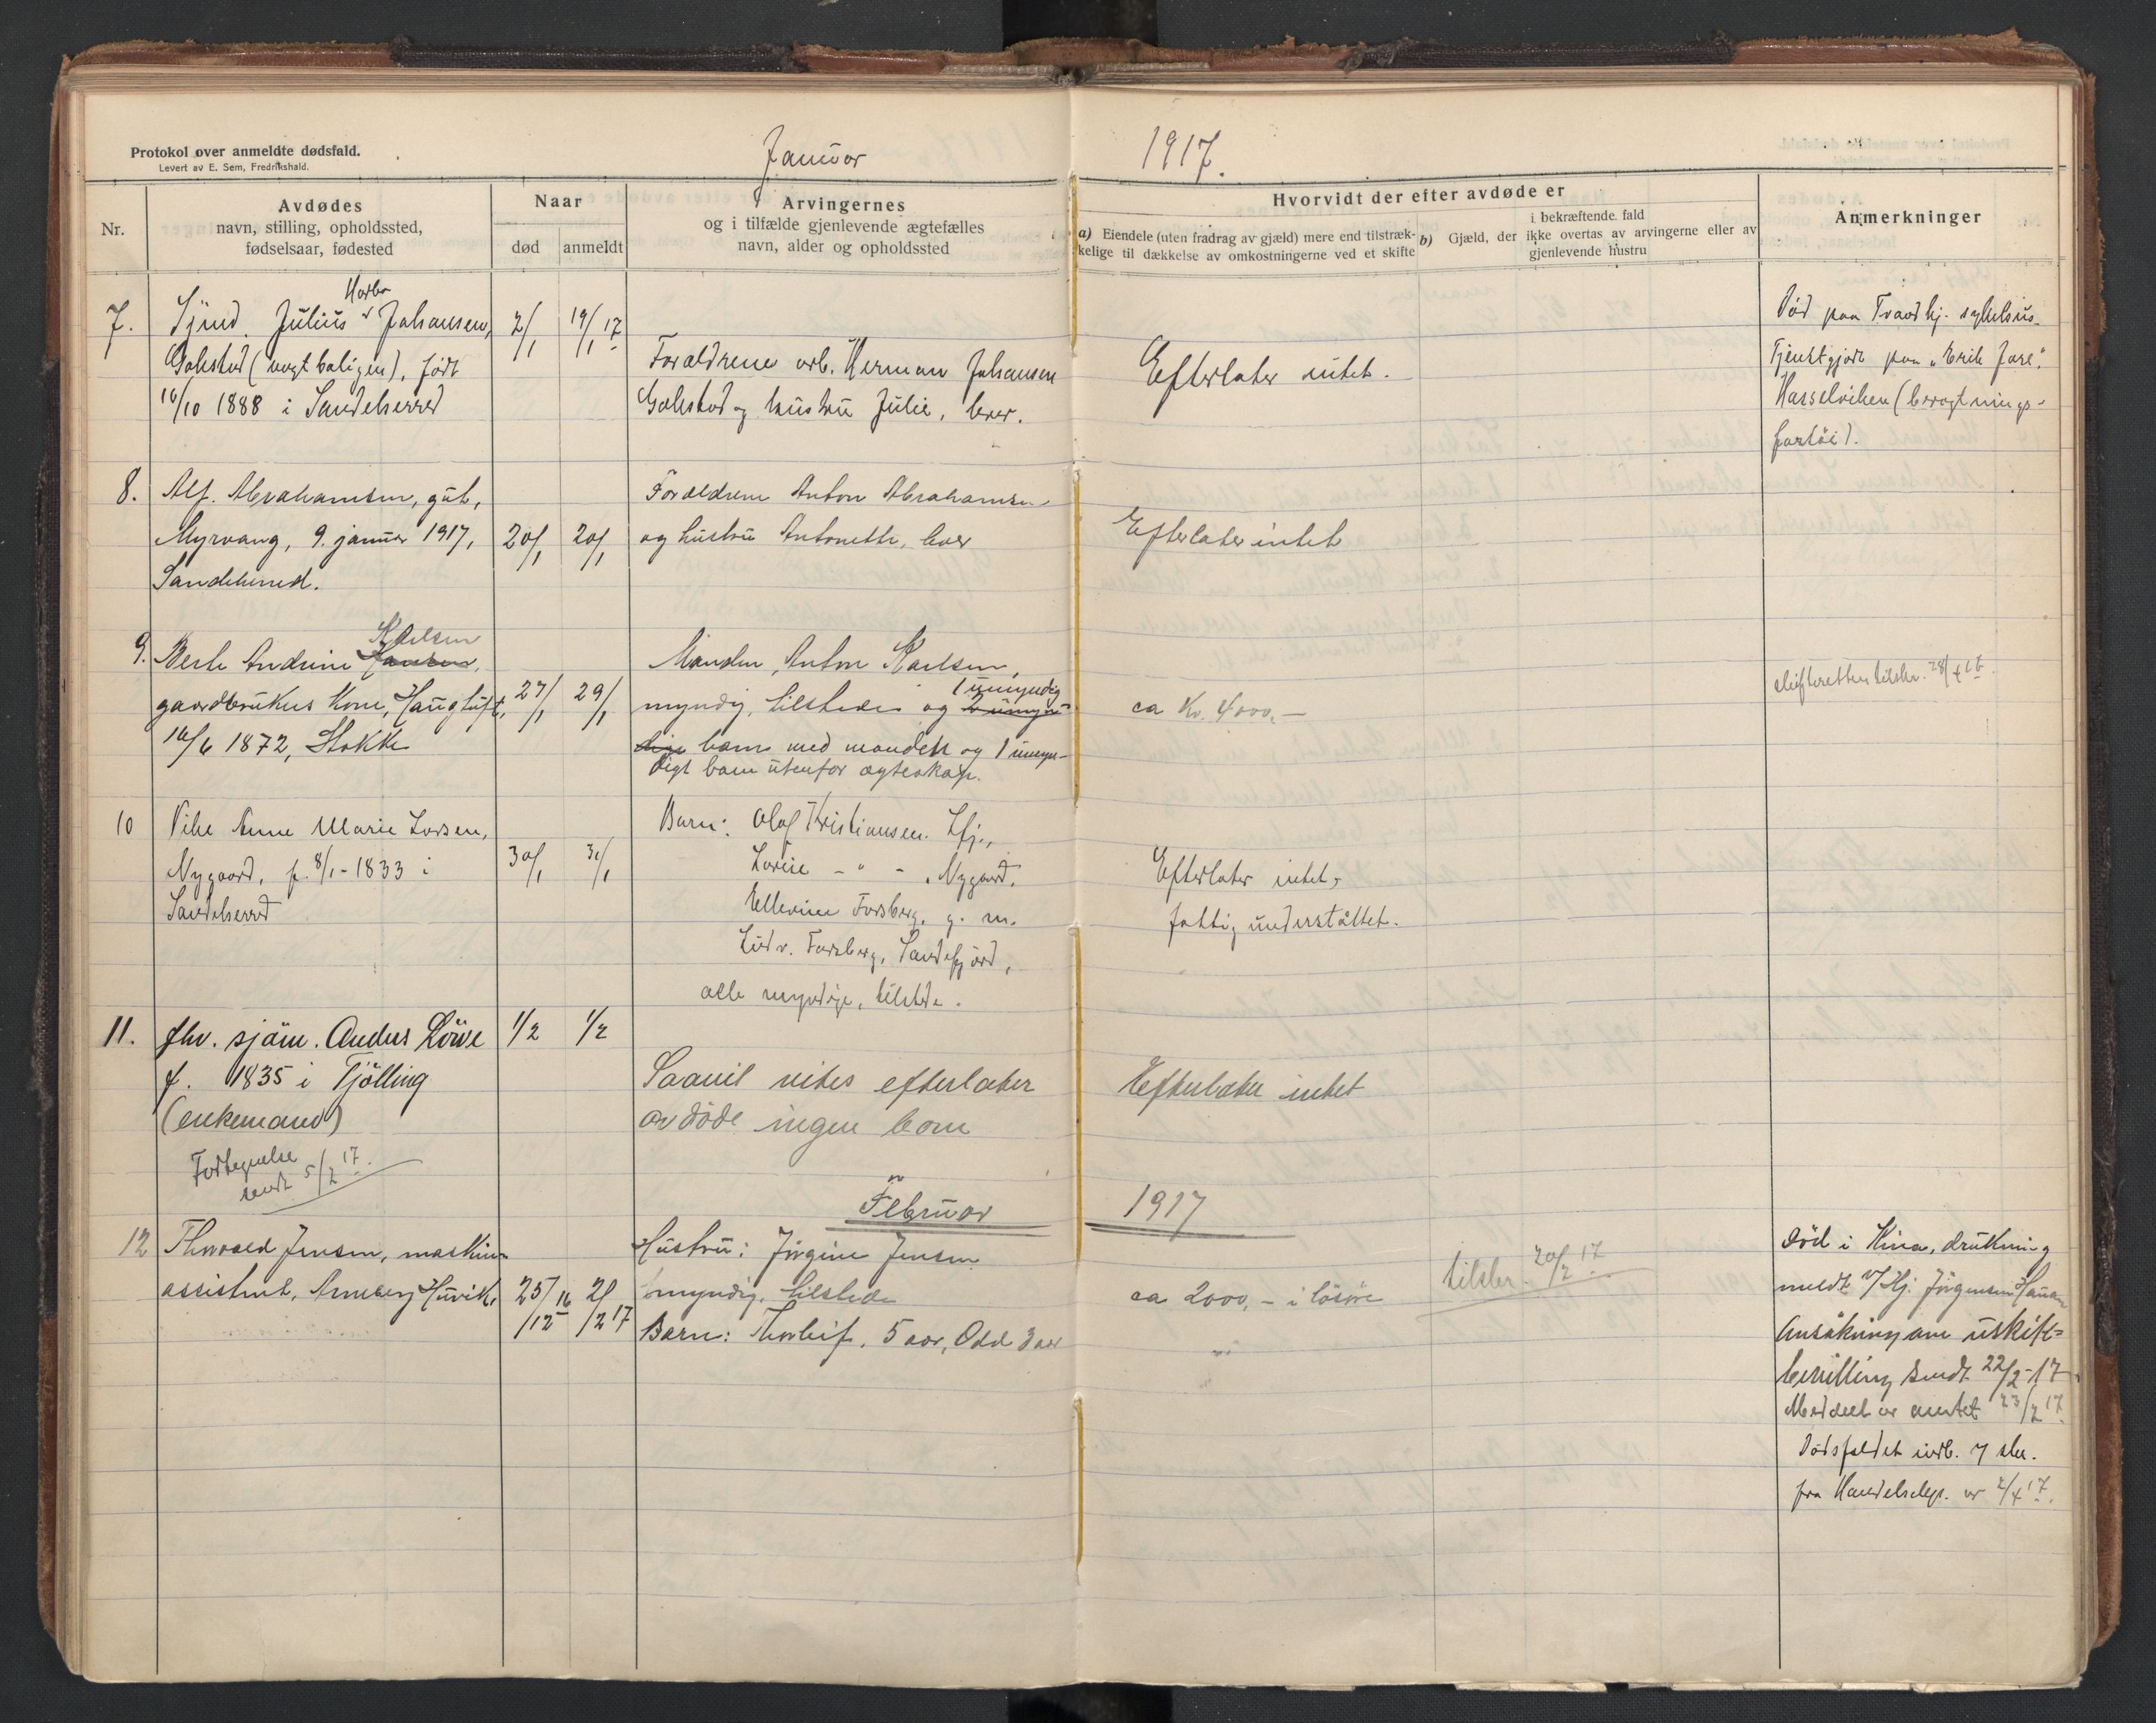 Protokol over anmeldte dødsfald.
Levert av E. Sem, Fredrikshald.
Januar 1917.
Nr.
Avdødes
navn, stilling, opholdssted,
fødselsaar, fødested
Naar
død
anmeldt
Arvingernes
og i tilfælde gjenlevende ægtefælles
navn, alder og opholdssted
Hvorvidt der efter avdøde er
a) Eiendele (uten fradrag av gjæld) mere end tilstræk-
kelige til dækkelse av omkostningerne ved et skifte
b) Gjæld, der
i bekræftende fald
ikke overtas av arvingerne eller av
gjenlevende hustru
Anmerkninger
7.
Harbo
Sjmd. Julius Johansen,
Gokstad (vogtboligen), født
16/10 1888 i Sandeherred
2/1
19/1 17
Forældrene arb. Herman Johansen
Gokstad og hustru Julie, lever.
Efterlater intet.
Død paa Trondhj. sykehus.
Tjenstgjort paa "Erik Jarl".
Hasselviken (bevogtnings-
fartöi).
8.
Alf Abrahamsen, gut,
Myrvang, 9. januar 1917,
Sandeherred.
20/1
20/1
Forældrene Anton Abrahamsen
og hustru Antonette, lever
Efterlater intet
9.
Karlsen
Berte Andrine Hansen,
gaardbrukers kone, Haughuft,
16/6 1872, Stokke
27/1
29/1
Manden, Anton Karlsen,
1 umyndig
myndig, tilstede og 2 umyn-
dige barn med manden og 1 umyn-
digt barn utenfor ægteskap.
ca Kr. 4000,-
Skifteretten tilskr. 28/4 17.
10
Pike Anne Marie Larsen,
Nygaard, f. 8/1-1833 i
Sandeherred
30/1
31/1
Barn: Olaf Kristiansen. Sfj.,
Lovise - " - , Nygaard,
Ellevine Forsberg, g. m.
Ludv. Forsberg, Sandefjord,
alle myndige, tilstede.
Efterlater intet,
fattig understøttet.
11.
fhv. sjöm. Anders Röive
f. 1835 i Tjölling
(enkemand)
Fortegnelse
sendt 5/2 17.
1/2
1/2
Saavit vites efterlater
avdöde ingen barn
Efterlater intet
Februar 1917
12
Thorvald Jensen, maskin-
assistent, Anneberg Huvik,
25/12 16
2/2 17
Hustru: Jörgine Jensen
myndig, tilstede
Barn: Thorleif, 5 aar, Odd 3 aar
ca 2000,- i lösöre
tilskr. 20/2 17
Död i Kina, drukning
meldt v/ Hj. Jörgensen
Ansökning om uskift-
bevilling sendt 22/2-17
Meddelt av amtet 23/2 17.
Dödsfaldet indb. 7 skr.
fra Handelsdep. av 2/4 17.